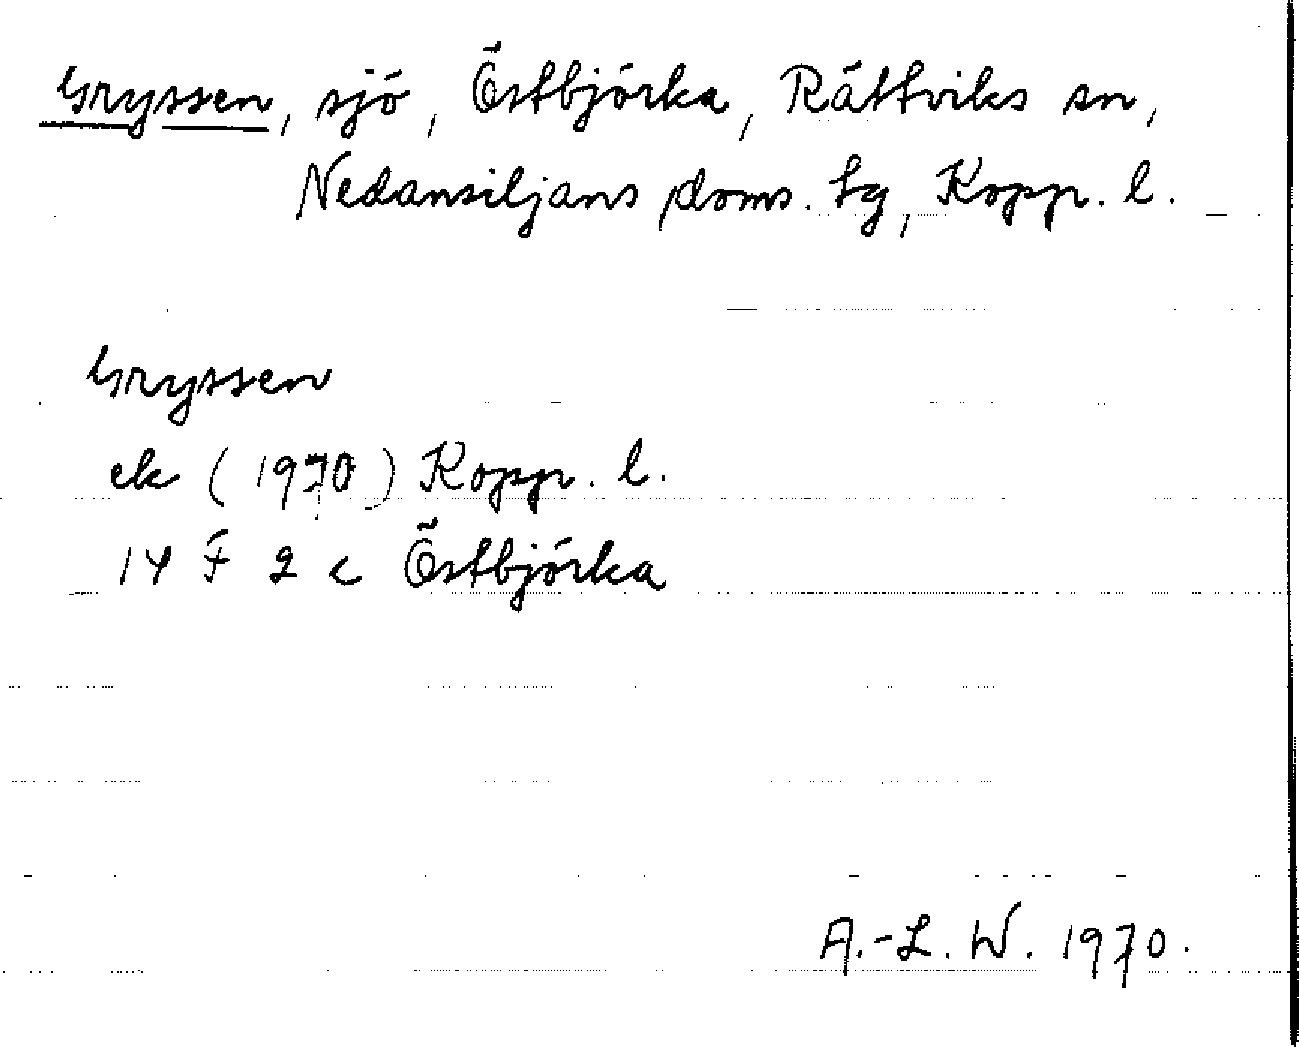 Gryssen, sjö, Östbjörka, Rättviks sn,
Nedansiljans doms. tg, Kopp. l.
Gryssen
ek (1970) Kopp. l.
14 F 2 c Östbjörka
A.-L. W. 1970.